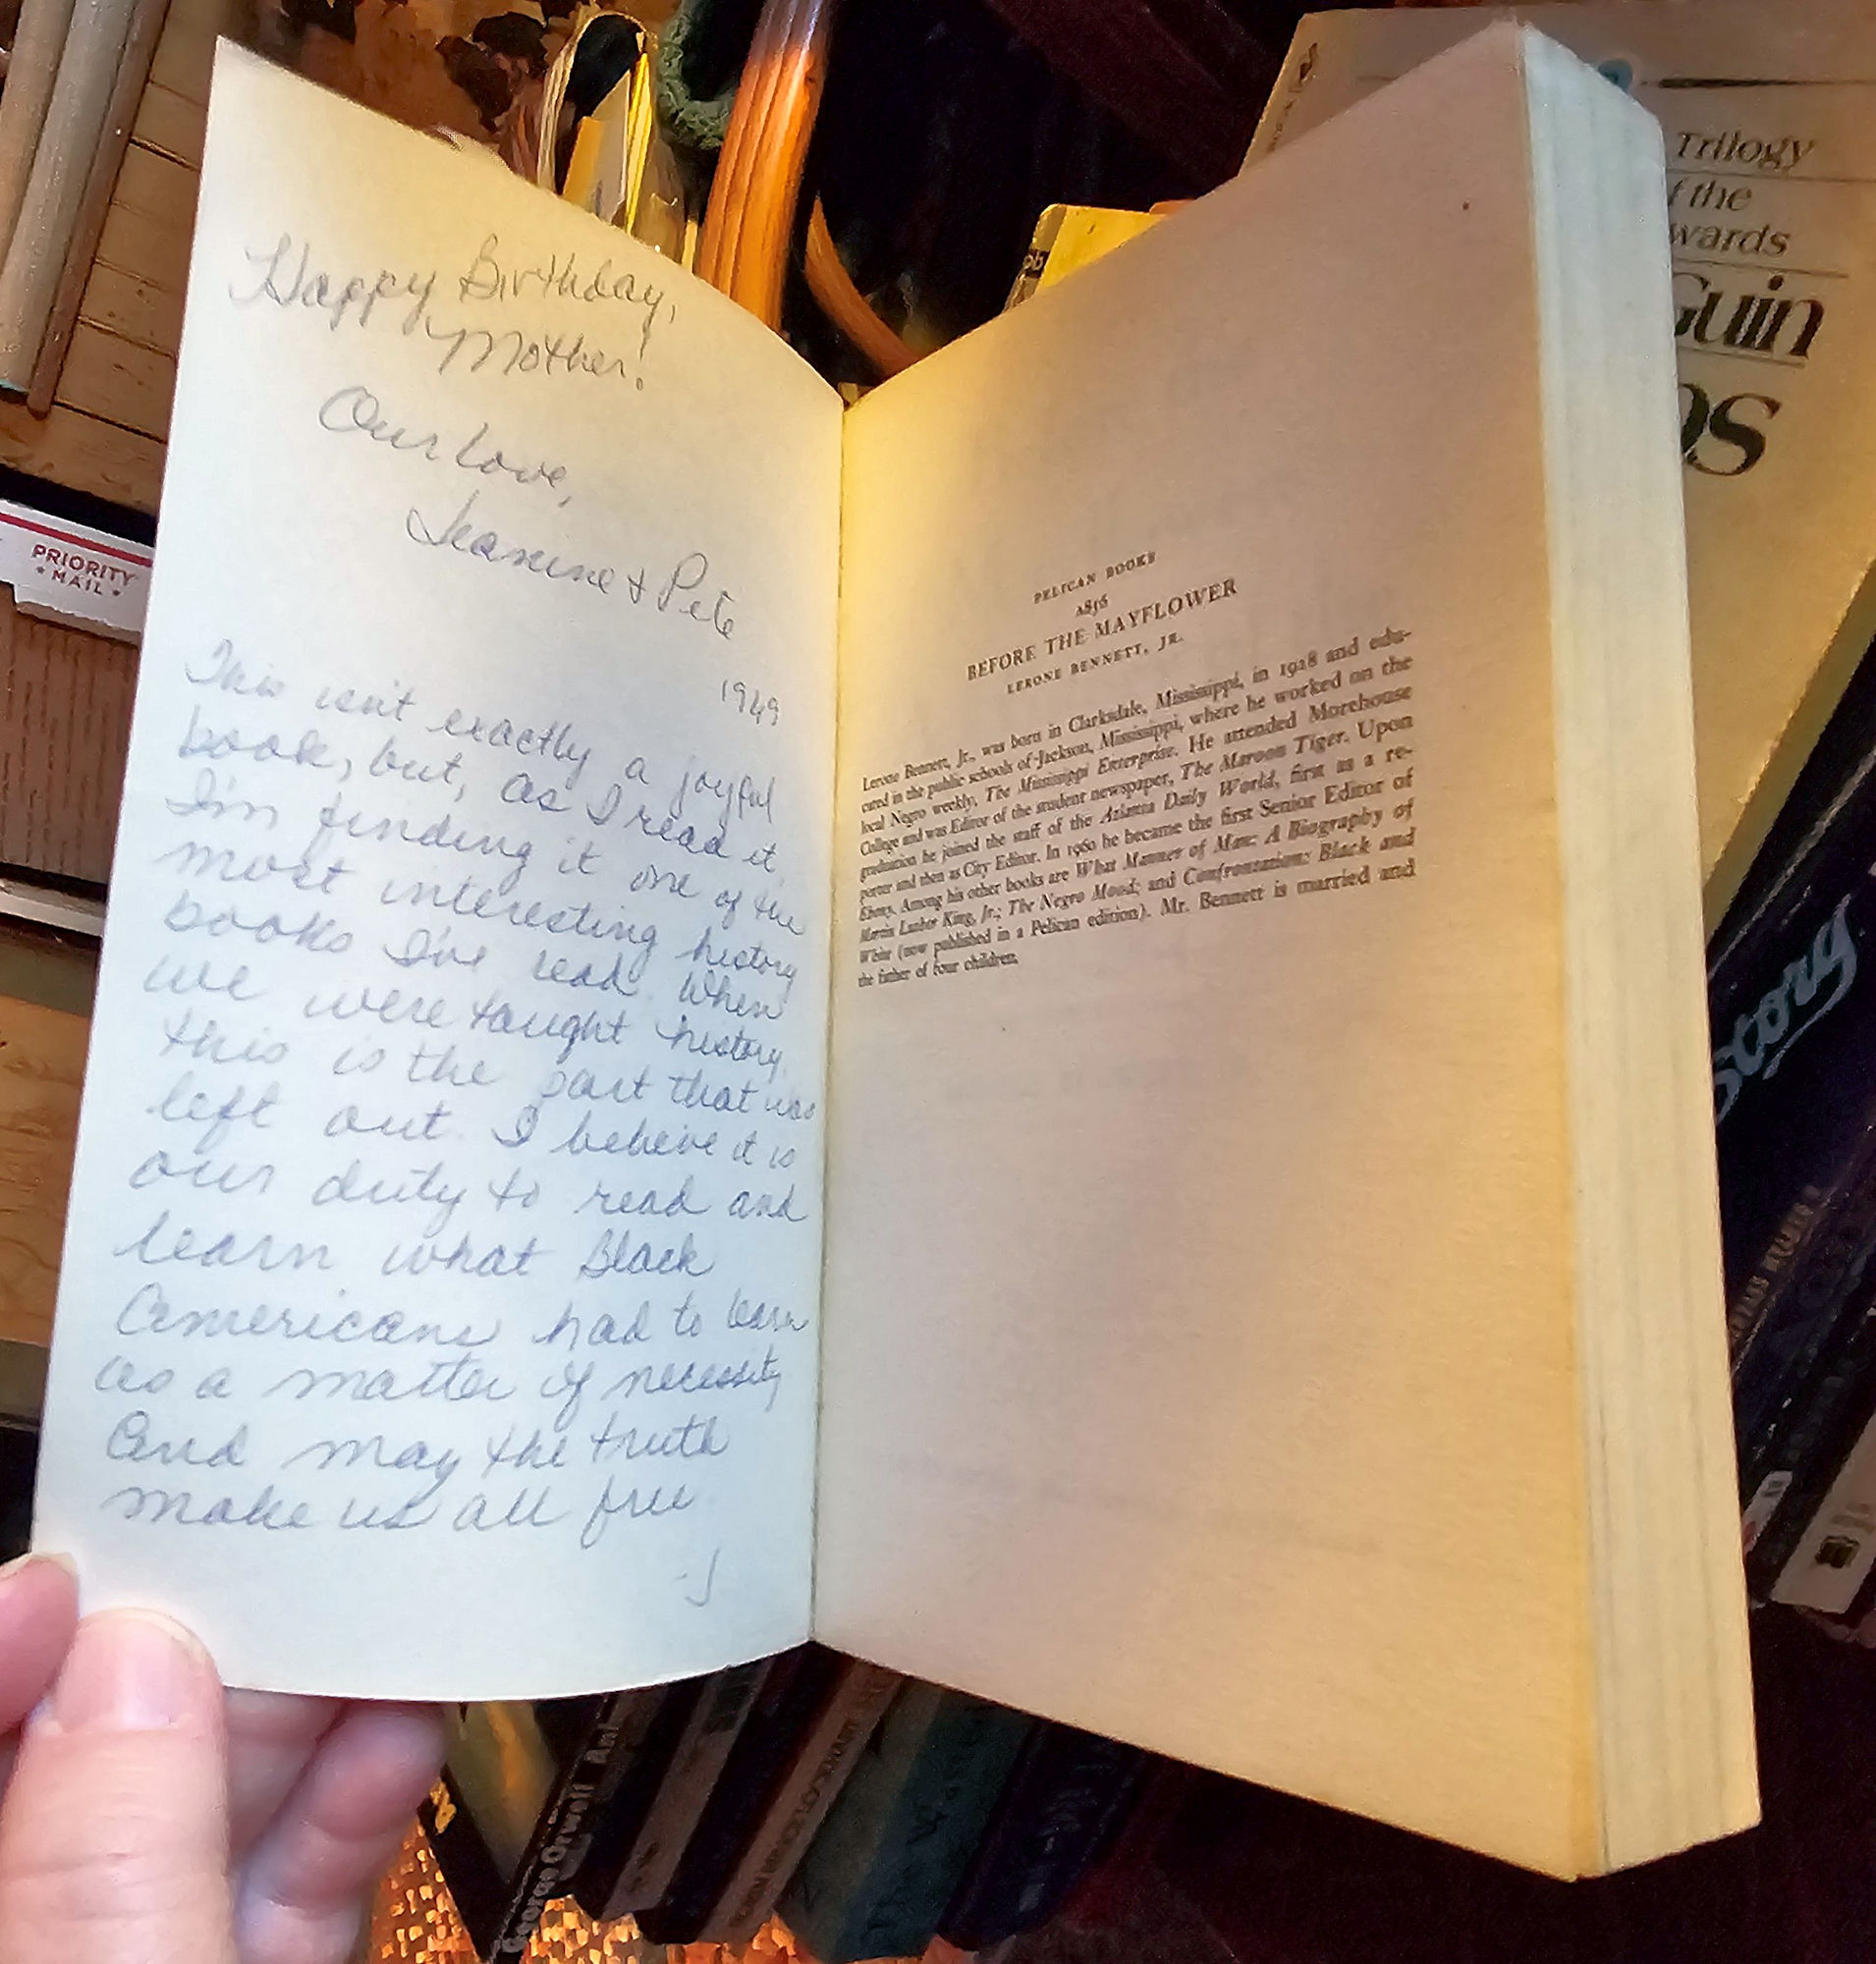 Happy Birthday,
Mother!
Our Love,
Jeanine & Pete
1949
This isn't exactly a joyful
book, but, as I read it
I'm finding it one of the
most interesting history
books I've read. When
we were taught history,
this is the part that was
left out. I believe it is
our duty to read and
learn what Black
Americans had to learn
as a matter of necessity
And may the truth
make us all free
J
PELICAN BOOKS
A856
BEFORE THE MAYFLOWER
LERONE BENNETT, JR.
Lerone Bennett, Jr., was born in Clarksdale, Mississippi, in 1928 and edu-
cated in the public schools of Jackson, Mississippi, where he worked on the
local Negro weekly, The Mississippi Enterprise. He attended Morehouse
College and was Editor of the student newspaper, The Maroon Tiger. Upon
graduation he joined the staff of the Atlanta Daily World, first as a re-
porter and then as City Editor. In 1960 he became the first Senior Editor of
Ebony. Among his other books are What Manner of Man: A Biography of
Martin Luther King, Jr.; The Negro Mood; and Confrontation: Black and
White (now published in a Pelican edition). Mr. Bennett is married and
the father of four children.
PRIORITY
MAIL
Trilogy
f the
wards
Guin
os
story
George Orwell